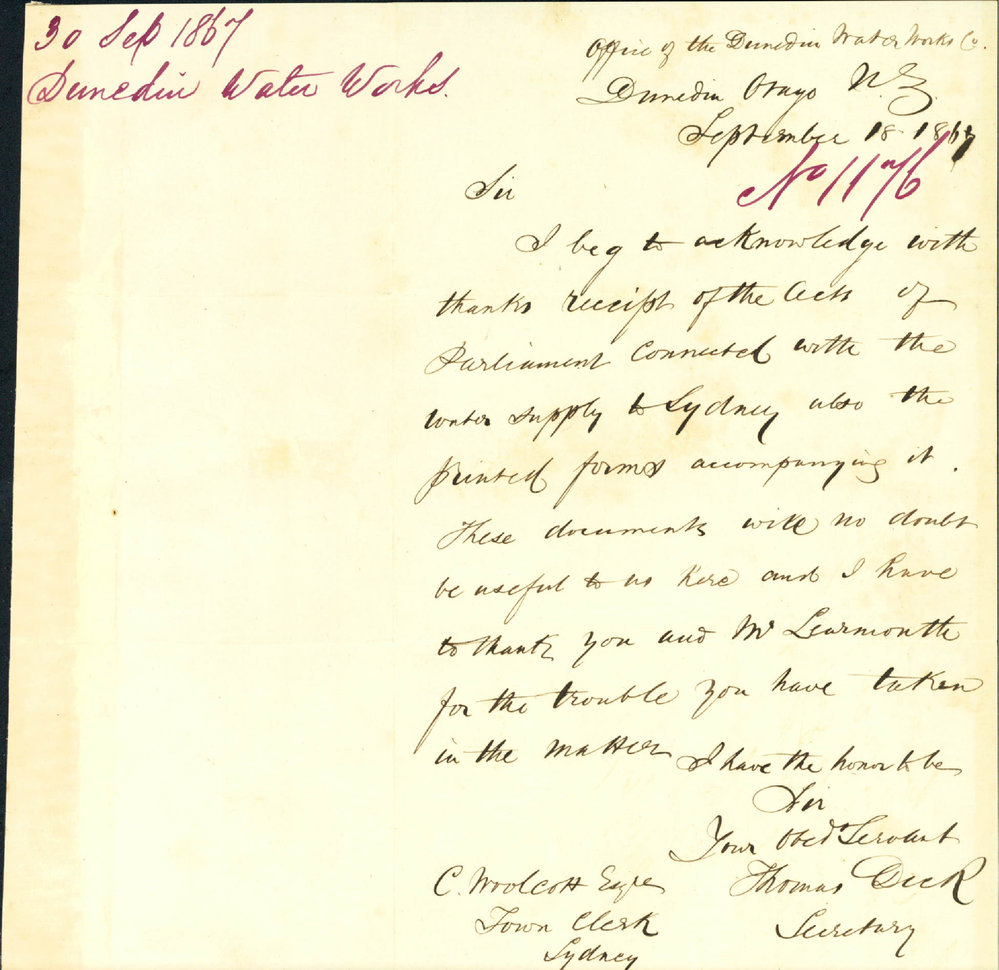 30 Sep 1867
Dunedin Water Works.
Office of the Dunedin Water Works Co.
Dunedin Otago N.Z.
September 18 1867
No 1176
Sir
I beg to acknowledge with
thanks receipt of the Acts of
Parliament Connected with the
water supply to Sydney also the
printed forms accompanying it.
These documents will no doubt
be useful to us here and I have
to thank you and Mr Learmonth
for the trouble you have taken
in the matter
I have the honor to be
Sir
Your Obed Servant
Thomas Dick
Secretary
C. Woolcott Esqre
Town Clerk
Sydney